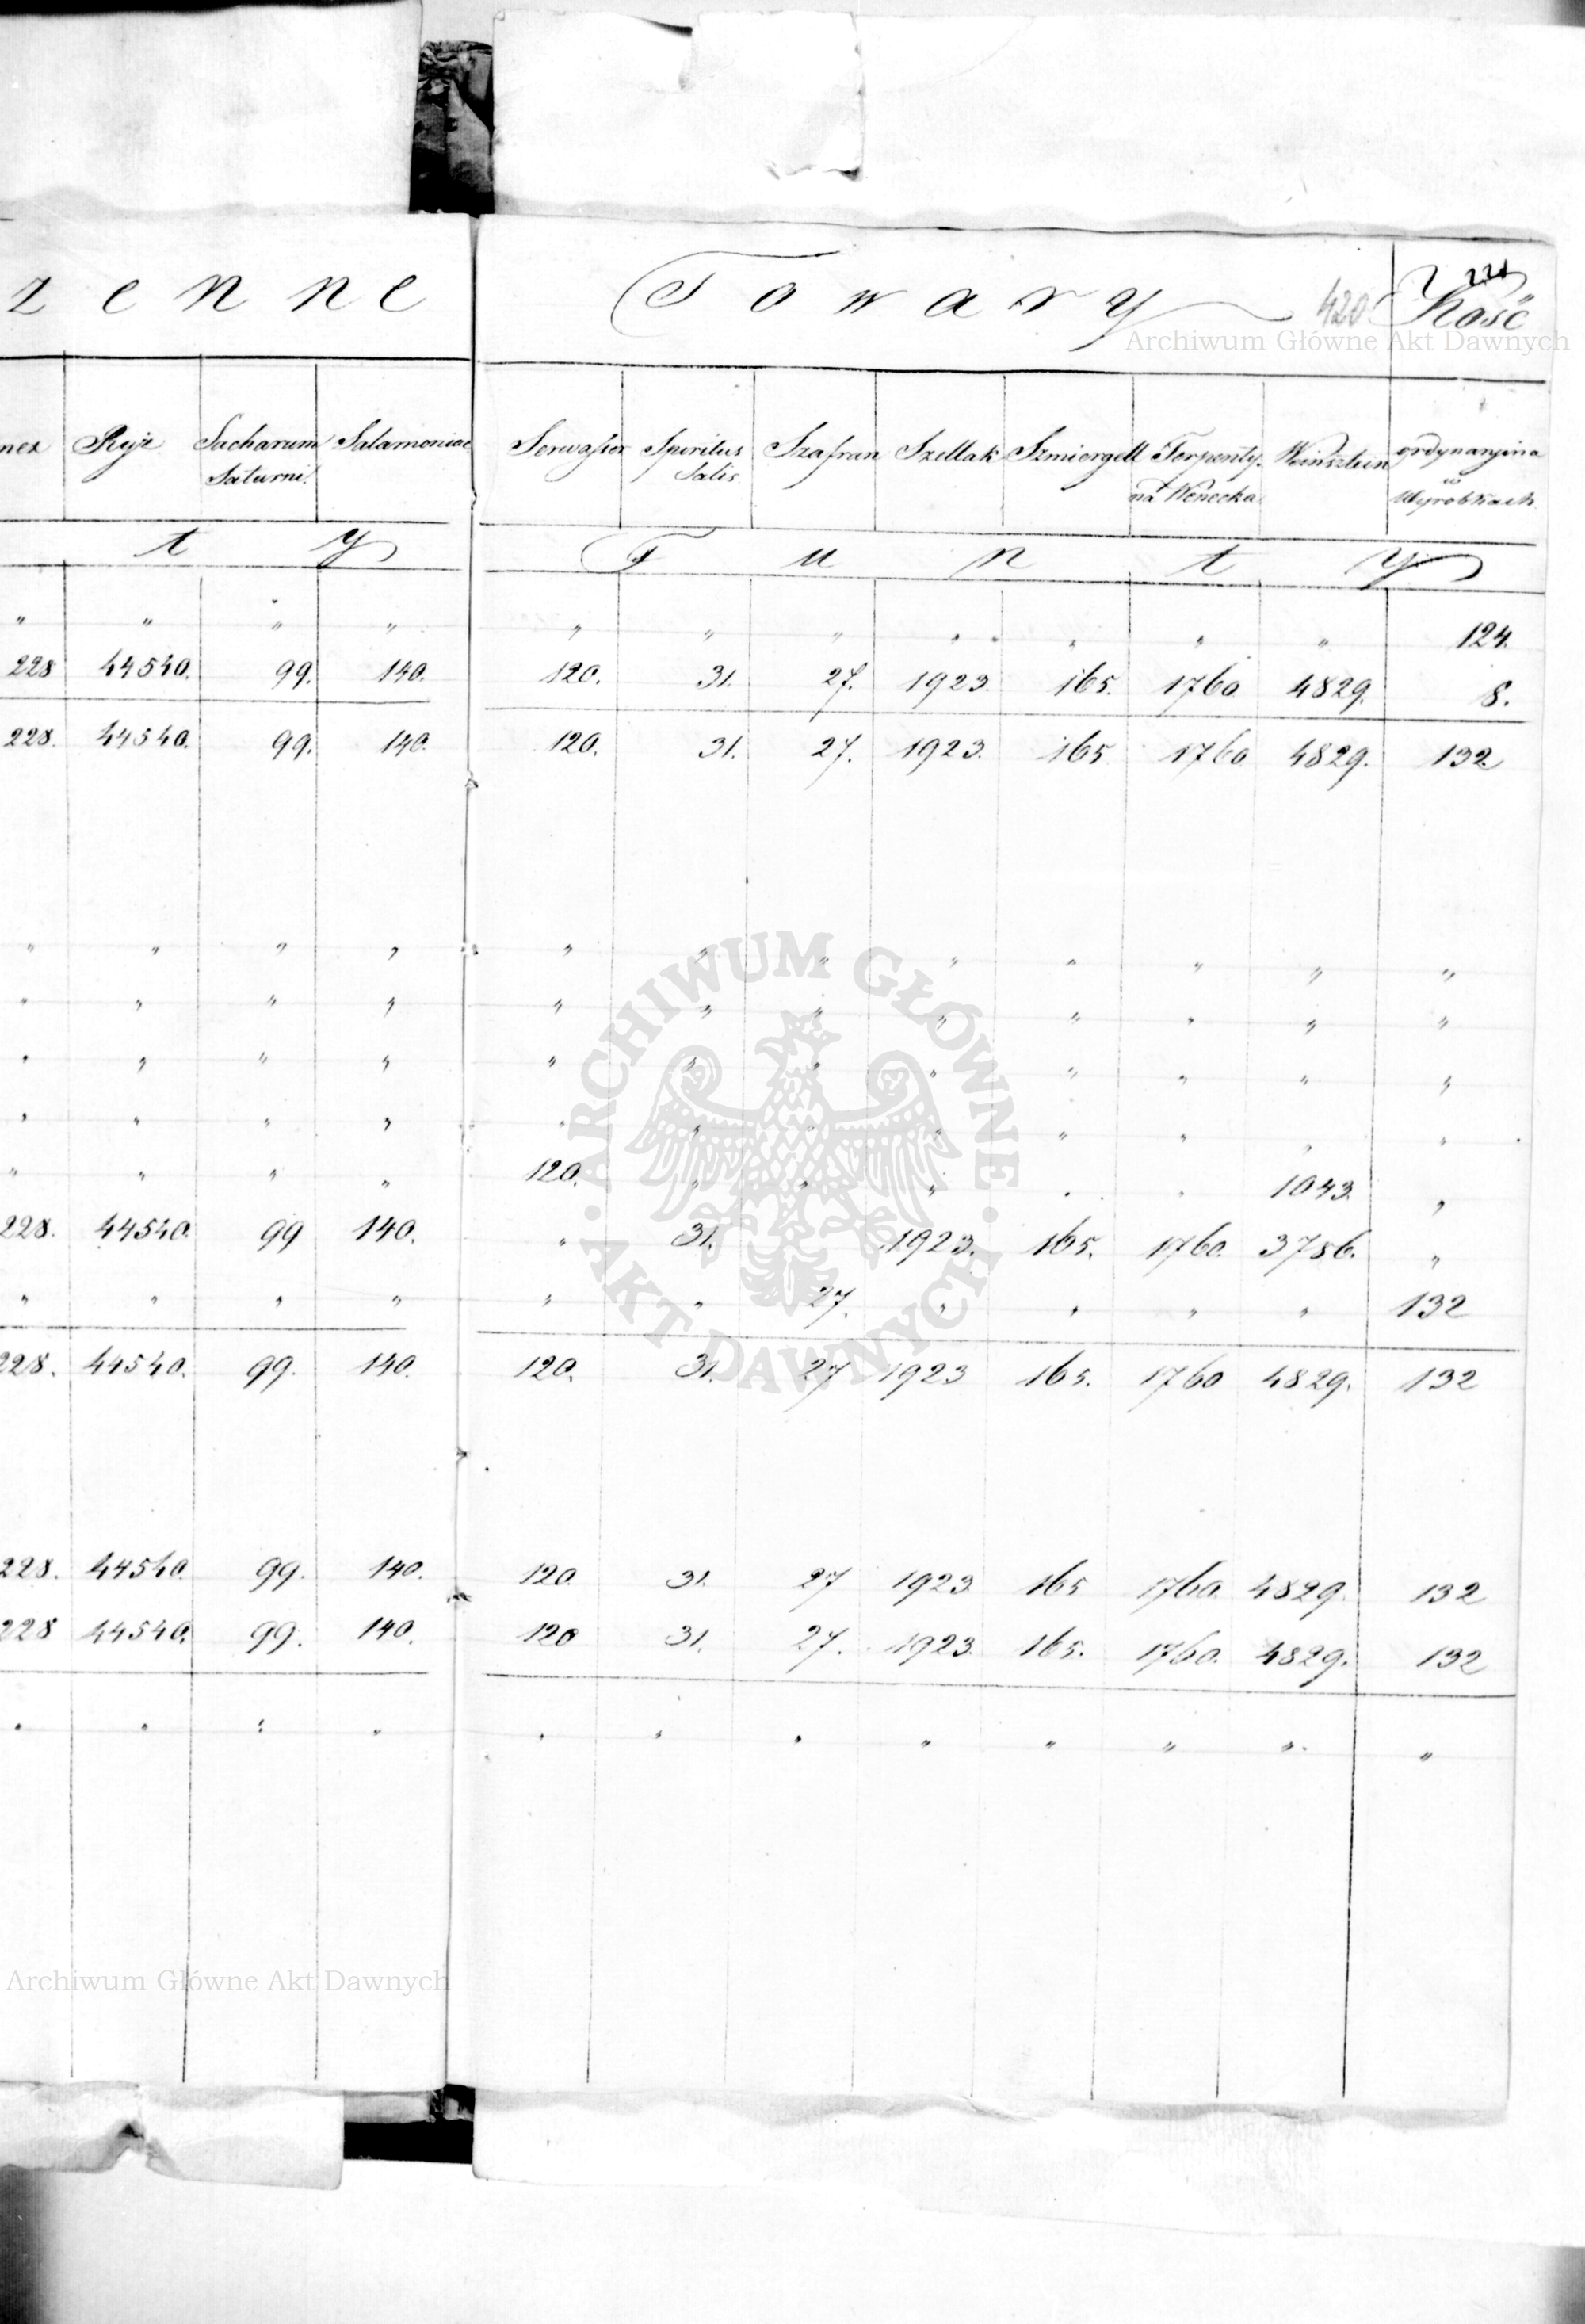 zenne Towary 420. 221
Kość
nez Ryż Sacharum Salamoniac Serwaser Spiritus Szafran Szellak Szmiergell Terpenty- Weinsztein ordynaryjna
Saturni Salis na Wenecka w
Wyrobkach
t y F u n t y
" " " " " " " " " " " 124.
228 44540. 99. 140. 120. 31. 27. 1923. 165. 1760 4829. 8.
228. 44540. 99. 140. 120. 31. 27. 1923. 165 1760 4829. 132
" " " " " " " " " " " "
" " " " " " " " " " " "
" " " " " " " " " " " "
" " " " " " " " " " " "
" " " " 120. " " " " " 1043. "
228. 44540. 99 140. " 31. 1923. 165. 1760. 3786. "
" " " " " " 27. " " " " 132
228. 44540. 99. 140. 120. 31. 27 1923 165. 1760 4829. 132
228. 44540. 99. 140. 120. 31. 27 1923 165 1760. 4829. 132
228 44540. 99. 140. 120 31. 27. 1923. 165. 1760. 4829. 132
" " " " " " " " " " " "
Archiwum Główne Akt Dawnych
ARCHIWUM GŁÓWNE · AKT DAWNYCH ·
Archiwum Główne Akt Dawnych